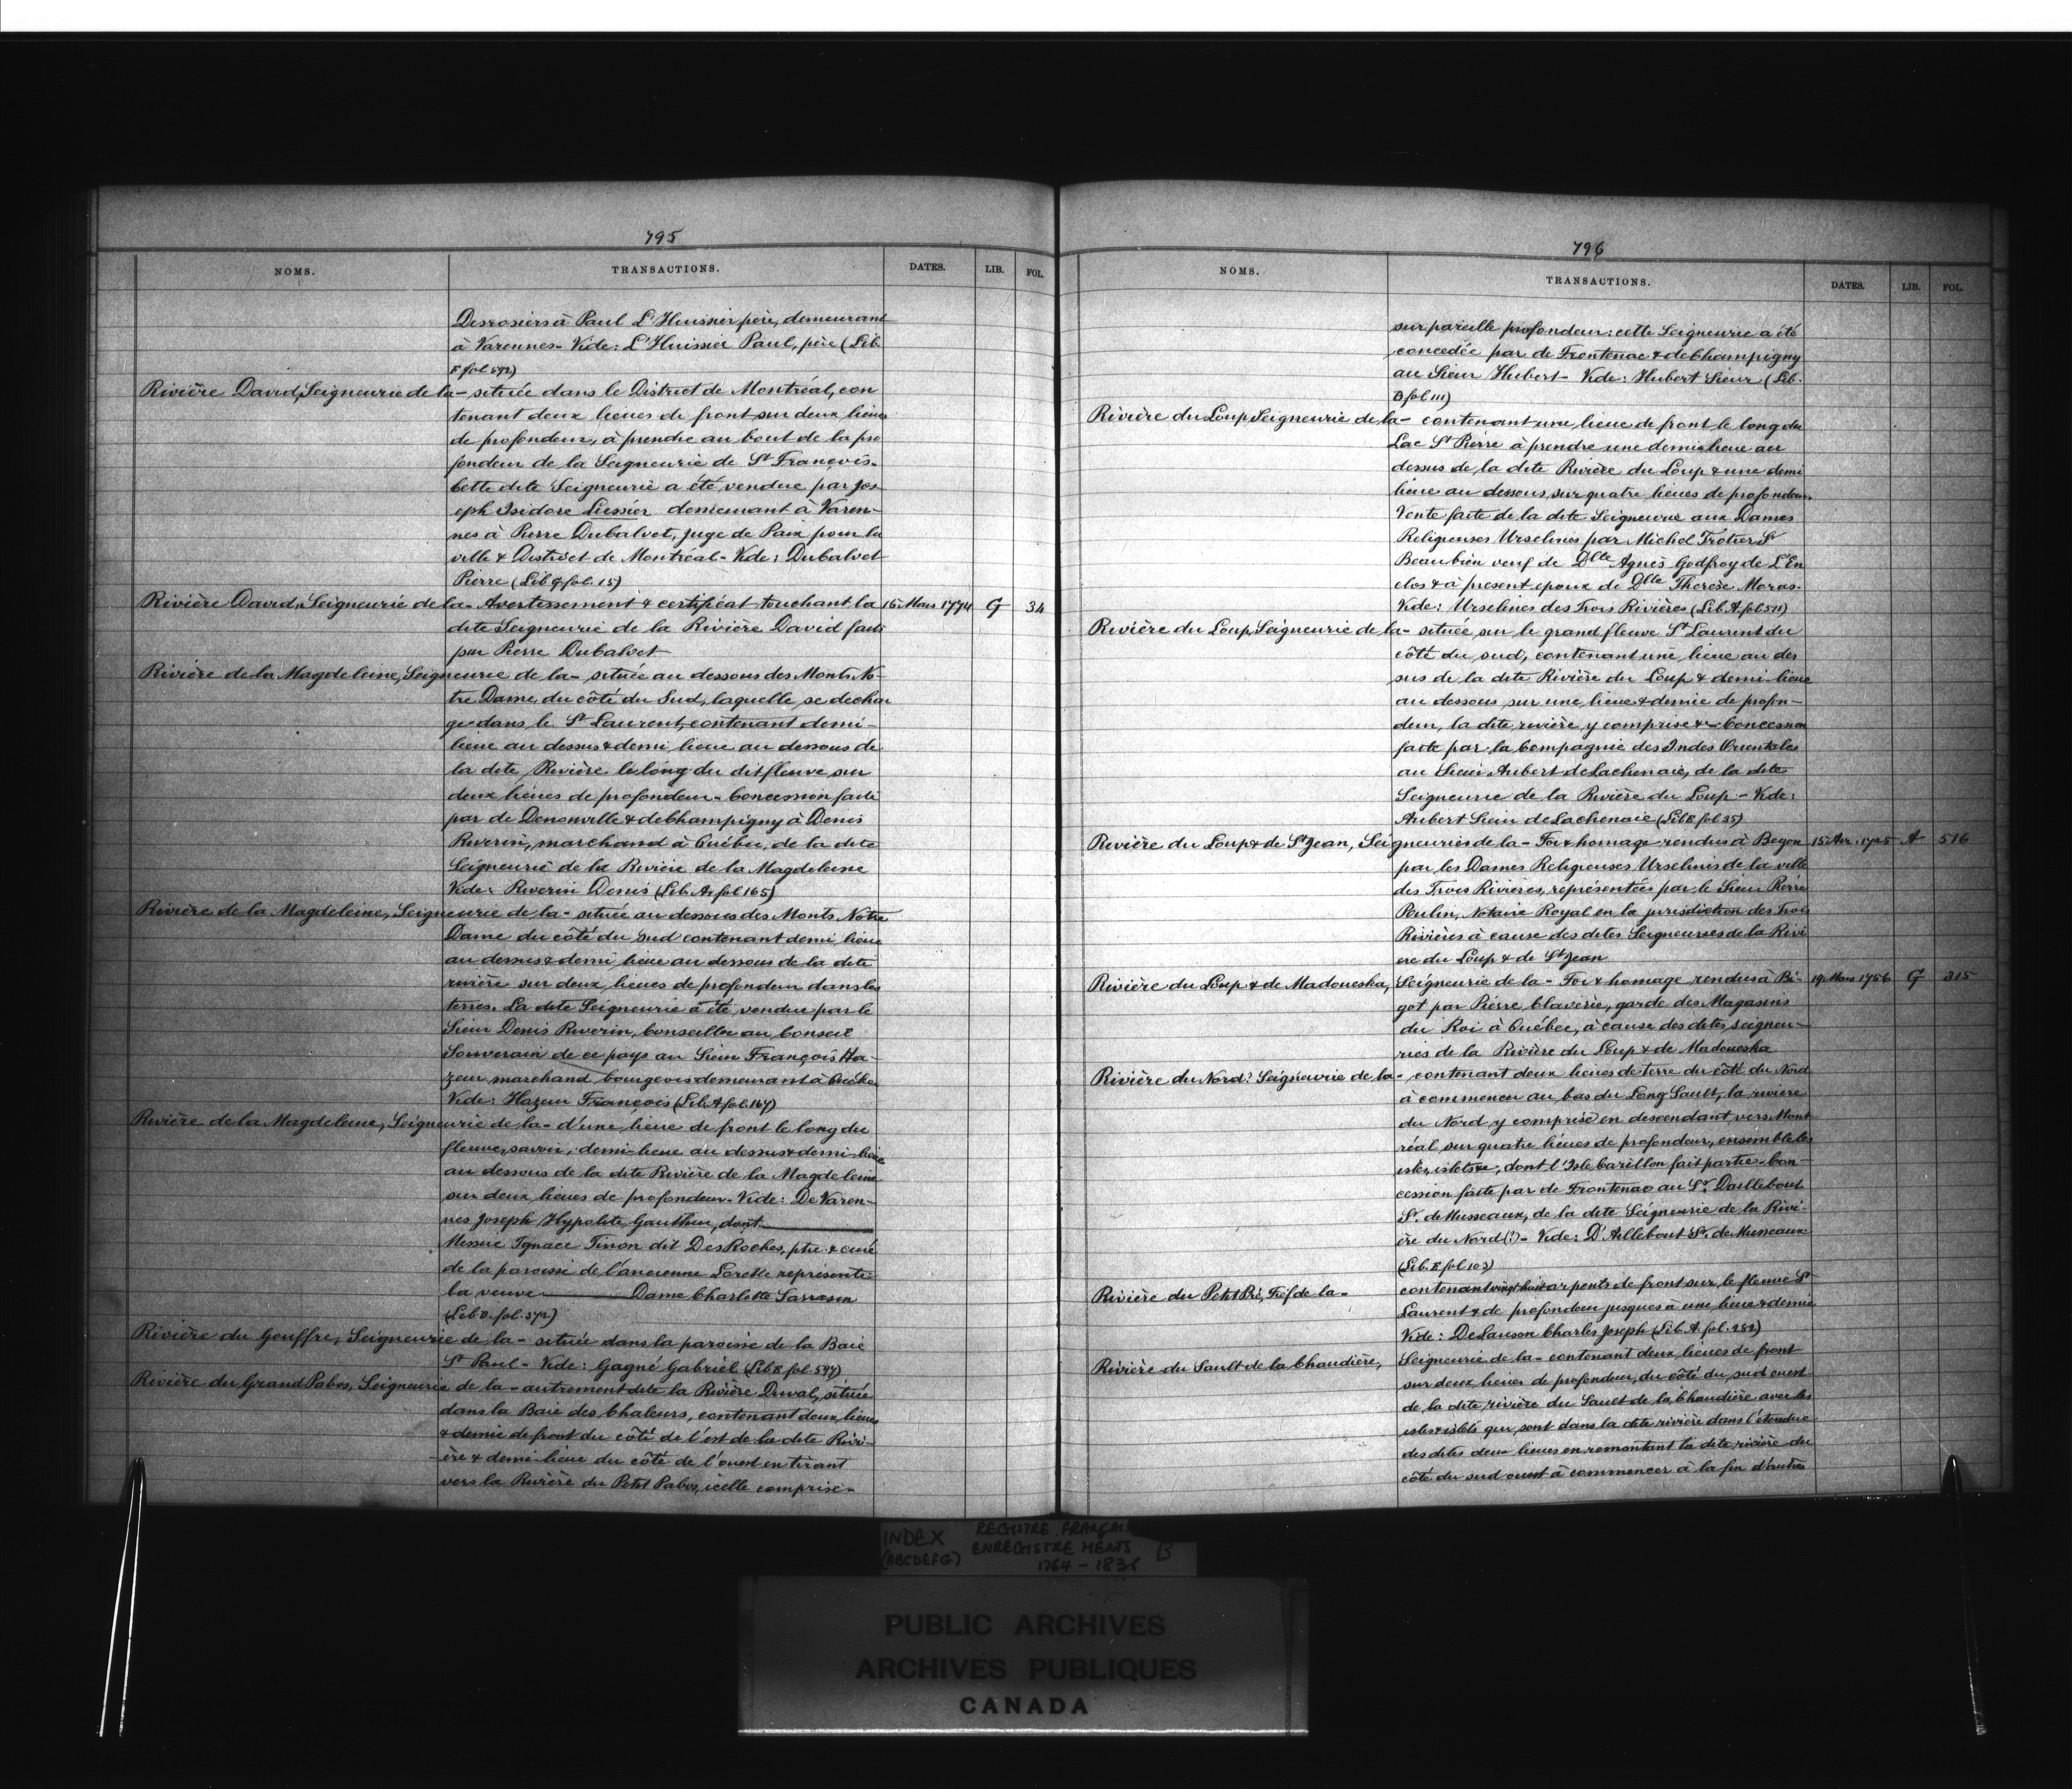 795
NOMS. TRANSACTIONS. DATES. LIB. FOL.
Desrosiers à Paul L'Huissier père, demeurant
à Varennes - Vide: L'Huissier Paul, père (Lib.
E fol 592)
Rivière David, Seigneurie de la - située dans le District de Montréal, con
tenant deux lieues de front sur deux lieues
de profondeur, à prendre au bout de la pro
fondeur de la Seigneurie de St François.
Cette dite Seigneurie a été vendue par Jos
eph Isidore Liessier demeurant à Varen-
nes à Pierre Dubalvet, juge de Paix pour la
ville & District de Montréal - Vide: Dubalvet
Pierre (Lib G fol. 15)
Rivière David, Seigneurie de la - Avertissement & certificat touchant la 16 Mars 1774 G 34
dite Seigneurie de la Rivière David faits
par Pierre Dubalvet
Rivière de la Magdeleine, Seigneurie de la - située au dessous des Monts No-
tre Dame du côté du Sud, laquelle se dechar
ge dans le St Laurent, contenant demi-
lieue au dessus & demi lieue au dessous de
la dite Rivière le long du dit fleuve sur
deux lieues de profondeur - Concession faite
par de Denonville & de Champigny à Denis
Riverin, marchand à Québec, de la dite
Seigneurie de la Rivière de la Magdeleine
Vide: Riverin Denis (Lib. A. fol 165)
Rivière de la Magdeleine, Seigneurie de la - située au dessous des Monts Notre
Dame du côté du Sud contenant demi lieue
au dessus & demi lieue au dessous de la dite
rivière sur deux lieues de profondeur dans les
terres. La dite Seigneurie a été vendue par le
Sieur Denis Riverin, Conseiller au Conseil
Souverain de ce pays au Sieur François Ha-
zeur marchand bourgeois demeurant à Québec
Vide: Hazeur François (Lib. A fol. 167)
Rivière de la Magdeleine, Seigneurie de la - d'une lieue de front le long du
fleuve, savoir, demi-lieue au dessus & demi-lieue
au dessous de la dite Rivière de la Magdeleine
sur deux lieues de profondeur - Vide: De Varen-
nes Joseph Hypolite Gauthier, dont
Messire Ignace Tinon dit DesRoches, ptre & curé
de la paroisse de l'ancienne Lorette représente
la veuve Dame Charlotte Sarrasin
(Lib D. fol. 572)
Rivière du Gouffre, Seigneurie de la - située dans la paroisse de la Baie
St Paul - Vide: Gagné Gabriel (Lib E fol 597)
Rivière du Grand Pabos, Seigneurie de la - autrement dite la Rivière Duval, située
dans la Baie des Chaleurs, contenant deux lieues
& demie de front du côté de l'est de la dite Rivi-
ère & demi-lieue du côté de l'ouest en tirant
vers la Rivière du Petit Pabos, icelle comprise -
796
NOMS. TRANSACTIONS. DATES. LIB. FOL.
sur pareille profondeur: cette Seigneurie a été
concedée par de Frontenac & de Champigny
au Sieur Hubert - Vide: Hubert Sieur (Lib.
D fol 111)
Rivière du Loup Seigneurie de la - contenant une lieue de front le long du
Lac St Pierre à prendre une demi lieue au
dessus de la dite Rivière du Loup & une demi
lieue au dessous, sur quatre lieues de profondeur.
Vente faite de la dite Seigneurie aux Dames
Religieuses Urselines par Michel Trotier Sr
Beaubien veuf de Dlle Agnès Godfroy de L'En
clos & à present epoux de Dlle Therese Moras.
Vide: Urselines des Trois Rivières (Lib. A. fol 511)
Rivière du Loup, Seigneurie de la - située sur le grand fleuve St Laurent du
côté du sud, contenant une lieue au des
sus de la dite Rivière du Loup & demi-lieue
au dessous sur une lieue & demie de profon-
deur, la dite rivière y comprise &c - Concession
faite par la Compagnie des Indes Orientales
au Sieur Aubert de Lachenaie, de la dite
Seigneurie de la Rivière du Loup - Vide:
Aubert Sieur de Lachenaie (Lib B fol 35)
Rivière du Loup & de St Jean, Seigneuries de la - Foi & homage rendus à Begon 15 Avr. 1725 A 516
par les Dames Religieuses Urselines de la ville
des Trois Rivières, représentées par le Sieur Pierre
Poulin, Notaire Royal en la jurisdiction des Trois
Rivières à cause des dites Seigneuries de la Rivi
ere du Loup & de St Jean
Rivière du Loup & de Madoueska, Seigneurie de la - Foi & homage rendus à Bi- 19 Mars 1756 G 315
got par Pierre Claverie, garde des Magasins
du Roi à Québec, à cause des dites seigneu-
ries de la Rivière du Loup & de Madoueska
Rivière du Nord? Seigneurie de la - contenant deux lieues de terre du côté du Nord
à commencer au bas du Long Sault, la riviere
du Nord y comprise en descendant vers Mont
réal sur quatre lieues de profondeur, ensemble les
isles, islets &c, dont l'Isle Carillon fait partie - Con-
cession faite par de Frontenac au Sr. Daillebout
Sr. de Musseaux, de la dite Seigneurie de la Rivi-
ère du Nord (?) - Vide: D'Aillebout Sr. de Musseaux
(Lib. B fol 103)
Rivière du Petit Pré, Fief de la - contenant vingt huit arpents de front sur le fleuve St
Laurent & de profondeur jusques à une lieue & demie
Vide: De Lauson Charles Joseph (Lib. A. fol. 282)
Rivière du Sault de la Chaudière, Seigneurie de la - contenant deux lieues de front
sur deux lieues de profondeur, du côté du sud ouest
de la dite rivière du Sault de la Chaudière avec les
isles & islets qui sont dans la dite rivière dans l'étendue
des dites deux lieues en remontant la dite rivière du
côté du sud ouest à commencer à la fin d'autres
INDEX REGISTRE FRANÇAI
(ABCDEFG) ENREGISTREMENTS B
1764 - 183
PUBLIC ARCHIVES
ARCHIVES PUBLIQUES
CANADA